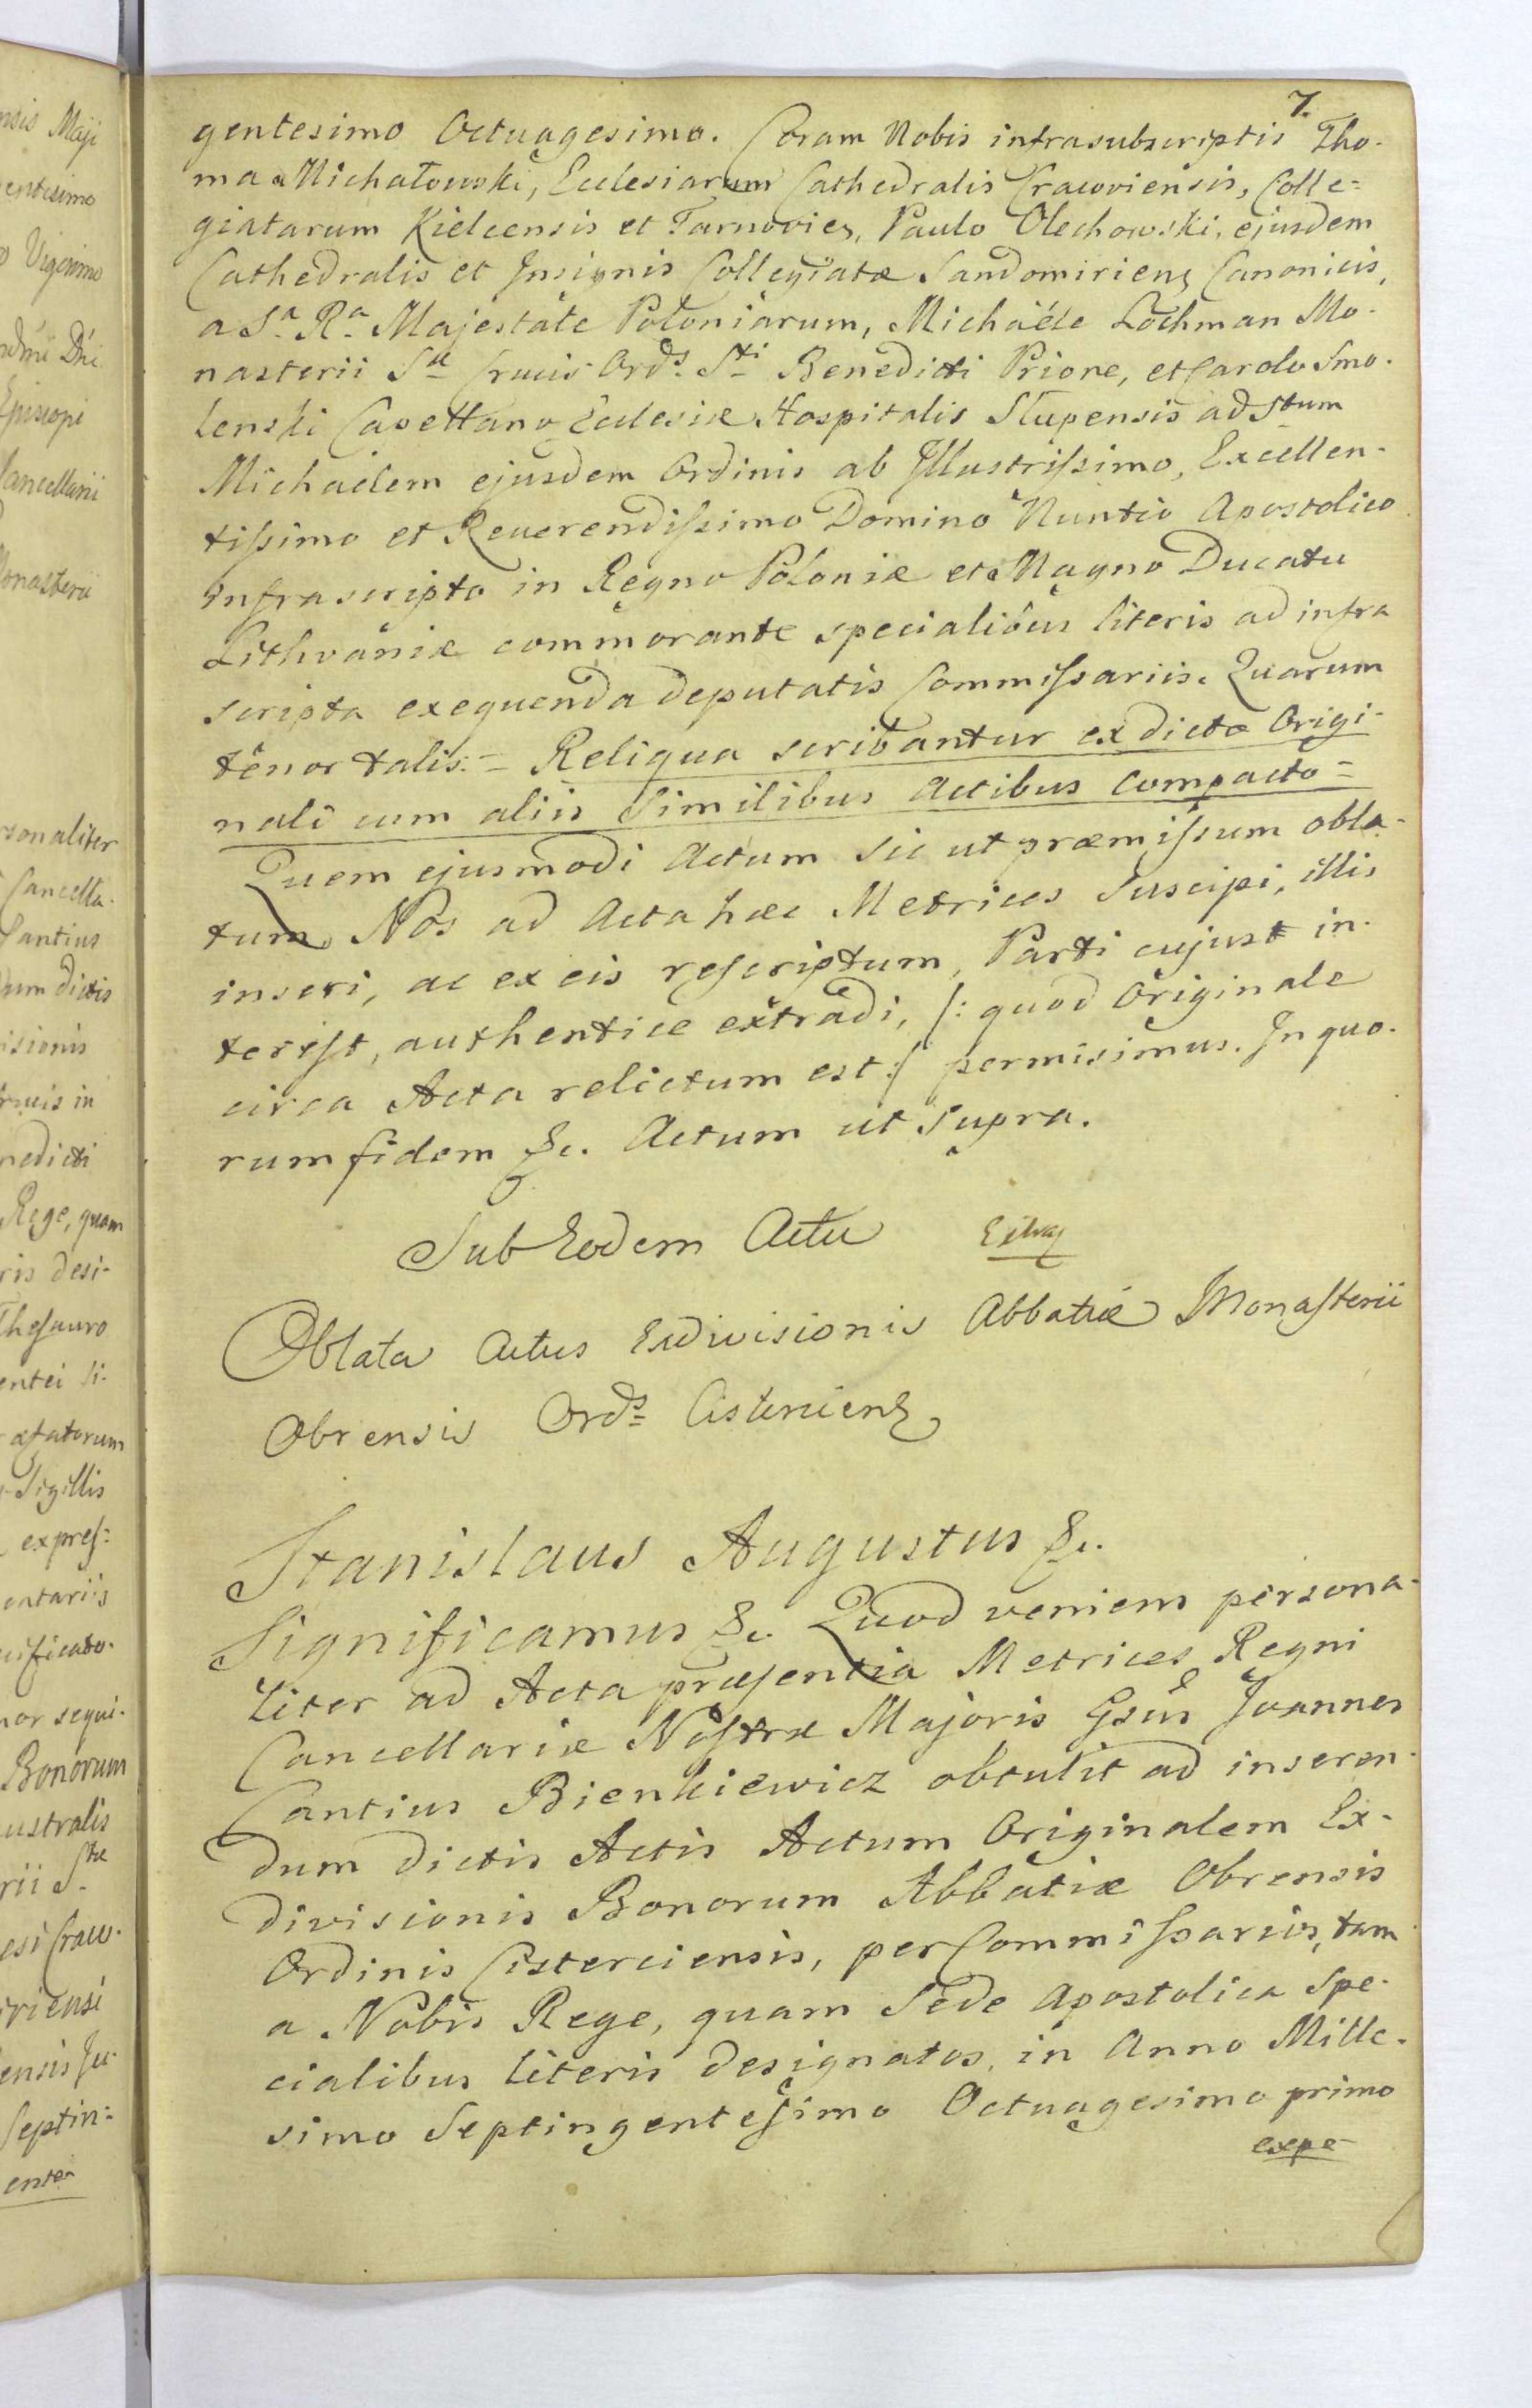 7.
gentesimo Octuagesimo. Coram Nobis infrasubscriptis Tho-
ma Michałowski, Ecclesiarum Cathedralis Cracoviensis, Colle=
giatarum Kielcensis et Tarnovien, Paulo Olechowski, ejusdem
Cathedralis et Insignis Collegiatæ Sandomirien Canonicis,
a Sa. Ra. Majestate Poloniarum, Michaële Lochman Mo-
nasterii Stæ Crucis Ords. Sti Benedicti Priore, et Carolo Smo-
lenski Ecclesiæ Hospitalis Slupensis ad Stum
Michaelem ejusdem Ordinis ab Illustrissimo, Excellen-
tissimo et Reverendissimo Domino Nuntio Apostolico
Infrascripto in Regno Poloniæ et Magno Ducatu
Lithvaniæ commorante specialibus literis ad infra
scripta exequenda deputatis Commissariis. Quarum
tenor talis. = Reliqua scribantur ex dicto Origi-
nali cum aliis Similibus Actibus compacto =
Quem ejusmodi Actum sic ut præmissum obla-
tum Nos ad Acta hæc Metrices Suscipi, illis
inseri, ac ex eis rescriptum, Parti cujust in-
terest, authentice extradi, /: quod Originale
circa Acta relictum est :/ permisimus. In quo-
rum fidem &c. Actum ut Supra.
Sub Eodem Actu
Oblata Actus Exdivisionis Abbatiæ Monasterii
Obrensis Ords= Cisterciens
Stanislaus Augustus &c.
Significamus &c. Quod veniens persona-
liter ad Acta præsentia Metrices Regni
Cancellariæ Nostræ Majoris Gsus Joannes
Cantius Bienkiewicz obtulit ad inseren-
dum dictis Actis Actum Originalem Ex-
divisionis Bonorum Abbatiæ Obrensis
Ordinis Cisterciensis, per Commissarios, tam
a Nobis Rege, quam Sede Apostolica Spe-
cialibus literis designatos, in Anno Mille-
simo Septingentesimo Octuagesimo primo
expe-